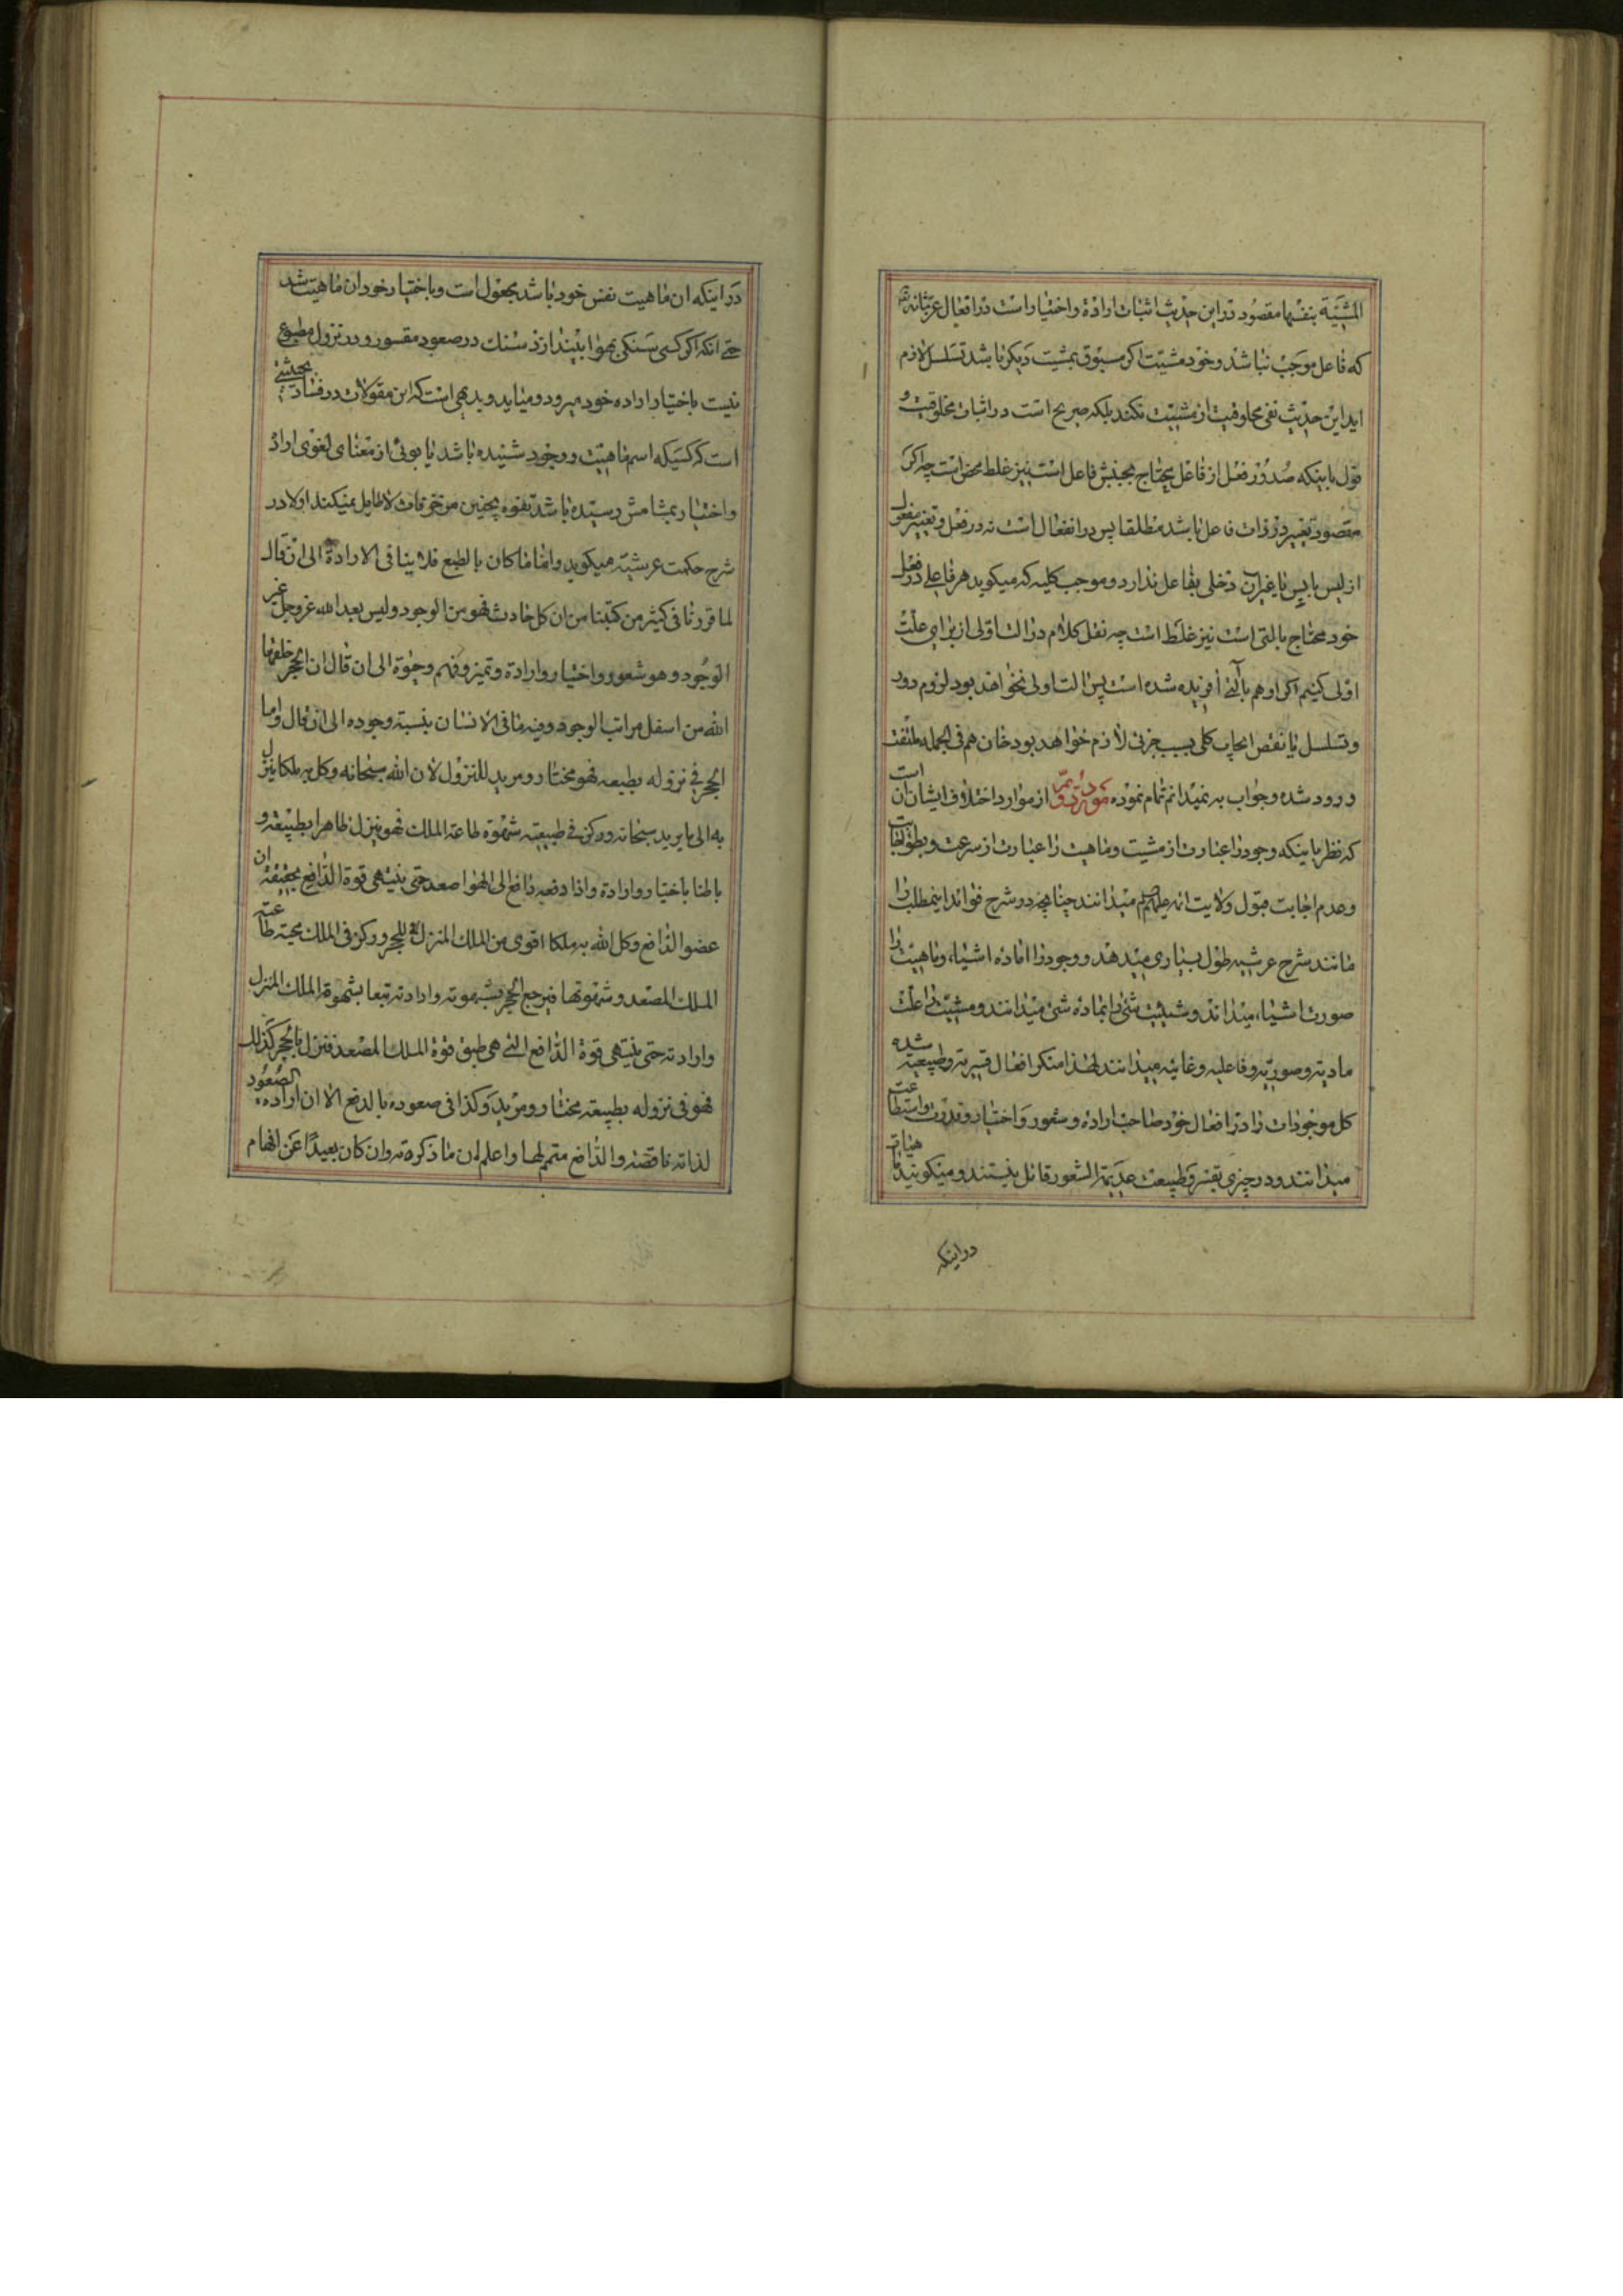 المشیة بنفسها مقصود در این حدیث اثبات ارادة و اختیار است در افعال عز شانه
که فاعل موجب نباشد و خود مشیت اکر مسبوق بمشیت دیکر باشد تسلسل لازم
اید این حدیث نفی مخلوقیت از مشیت نکند بلکه صریح است در اثبات مخلوقیت و
قول باینکه صدور فعل از فاعل محتاج بجنبش فاعل است نیز غلط محض است چه اکر
مقصود تغییر در ذات فاعل باشد مطلقا پس در انفعال است نه در فعل و تغییر مفعول
از لیس بایس یا غیر ان دخلی بفاعل ندارد و موجب کلیه که میکوید هر فاعلی در فعل
خود محتاج بالتی است نیز غلط است چه نقل کلام در الت اولی از برای علت
اولی کنیم اکر او هم بآلتی افریده شده است پس الت اولی نخواهد بود لزوم دور
و تسلسل یا نقض ایجاب کلی بسبب جزئی لازم خواهد بود خان هم فی الجمله ملتفت
ورود شده و جواب به نمیدانم تمام نموده از موارد اختلاف ایشان ان است
که نظر باینکه وجود را عبارت از مشیت و ماهیت را عبارت از سرعت و بطؤ اجابت
و عدم اجابت قبول ولایت ائمه میدانند چنانچه در شرح فوائد اینمطلب را
مانند شرح عرشیه طول بسیاری میدهد و وجود را ماده اشیاء و ماهیت را
صورت اشیاء میداند و شیئیت شئ را بماده شئ میدانند و مشیت را علت
مادیه و صوریه و فاعلیه و غائیه میدانند لهذا منکر افعال قسریه و طبیعیه شده
کل موجودات را در افعال خود صاحب اراده و شعور و اختیار و قدرت و استطاعت
میدانند و در چیزی بقسر و طبیعت عدیمة الشعور قائل نیستند و میکویند
در اینکه
در اینکه ان ماهیت نفس خود باشد مجعول است و باختیار خود ان ماهیت شد
حتی انکه اکر کسی سنکی بهوا بیندازد سنك در صعود مقسور و در نزول مطبوع
نیست باختیار اراده خود میرود و میاید و بدیهی است که این مقولات در فساد بحیثیتی
است که کسیکه اسم ماهیت و وجود شنیده باشد یا بوئی از معنای لغوی اراده
و اختیار بمشامش رسیده باشد تفوه بچنین مزخرفات لاطایل نمیکند اولا در
شرح حکمت عرشیه میکوید و اما ما کان بالطبع فلا ینافی الارادة الی ان قال
لما قررنا فی کثیر من کتبنا من ان کل حادث فهو من الوجود و لیس بعد الله عز و جل غیر
الوجود و هو شعور و اختیار و ارادة و تمیز و فهم و حیوة الی ان قال ان الحجر خلقها
الله من اسفل مراتب الوجود و فیه ما فی الانسان بنسبة وجوده الی ان قال و اما
الحجر فی نزوله بطبعه فهو مختار و مرید للنزول لان الله سبحانه وکل به ملکا ینزل
به الی ما یرید سبحانه و رکز فی طبیعته شهوة طاعة الملك فهو ینزل ظاهرا بطبیعته و
باطنا باختیار و ارادة و اذا دفعه دافع الی الهوا صعد حتی ینتهی قوة الدافع بحقیقة ان
عضو الدافع وکل الله به ملکا اقوی من الملك المنزل للحجر و رکز فی الملك محبة طاعته
الملك المصعد و شهوتها فیرجع الحجر بشهوته و ارادته تبعا بشهوة الملك المنزل
و ارادته حتی ینتهی قوة الدافع التی هی طبق قوة الملك المصعد فنزل بالحجر کذلك
فهو فی نزوله بطبیعته مختار و مرید و کذا فی صعوده بالدفع الا ان ارادة الصعود
لذاته ناقصة و الدافع متمم لها و اعلم ان ما ذکرته و ان کان بعیدا عن افهام